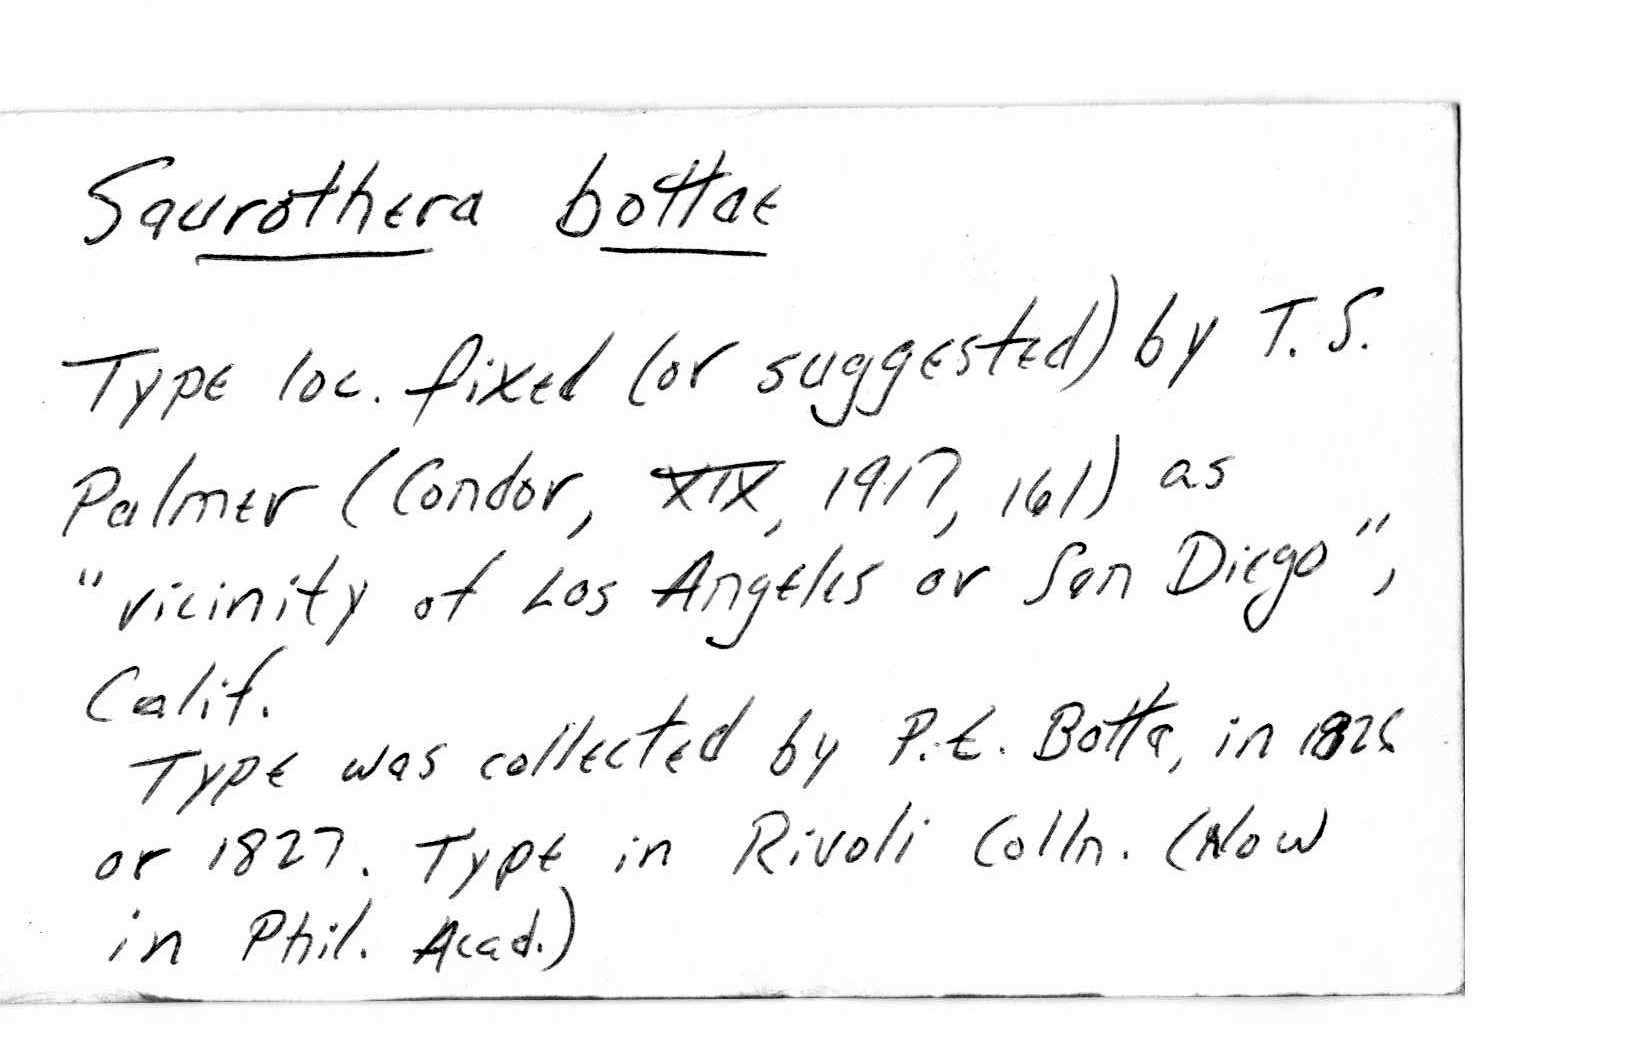 Saurothera bottae
Type loc. fixed (or suggested) by T.S.
Palmer (Condor, XIX, 1917, 161) as
"vicinity of Los Angeles or San Diego",
Calif.
Type was collected by P.E. Botta, in 1826
or 1827. Type in Rivoli Colln. (Now
in Phil. Acad.)